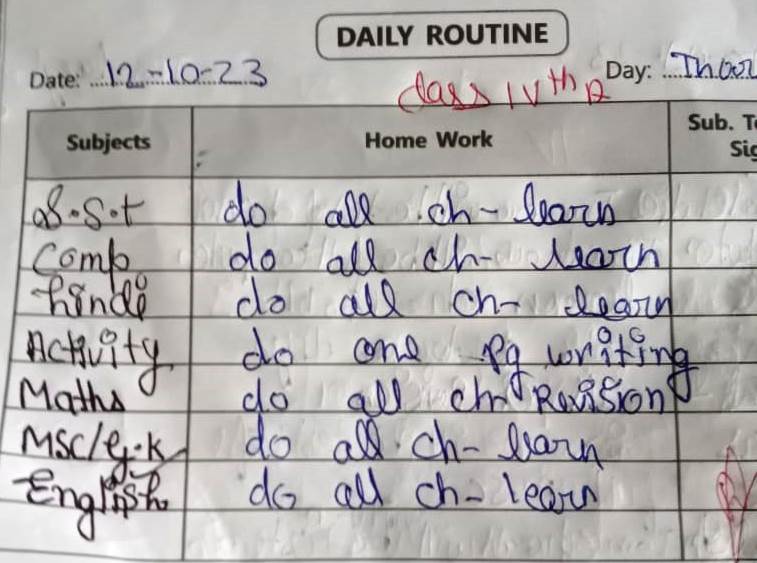 DAILY ROUTINE
Date: 12-10-23 Day: Thur
Class IVth A
Subjects Home Work Sub. T
Sig
S.S.t do all ch- learn
Comp do all ch- learn
hindi do all ch- learn
Activity do one pg writing
Maths do all ch Revision
MSC/G.K do all ch- learn
English do all ch- learn